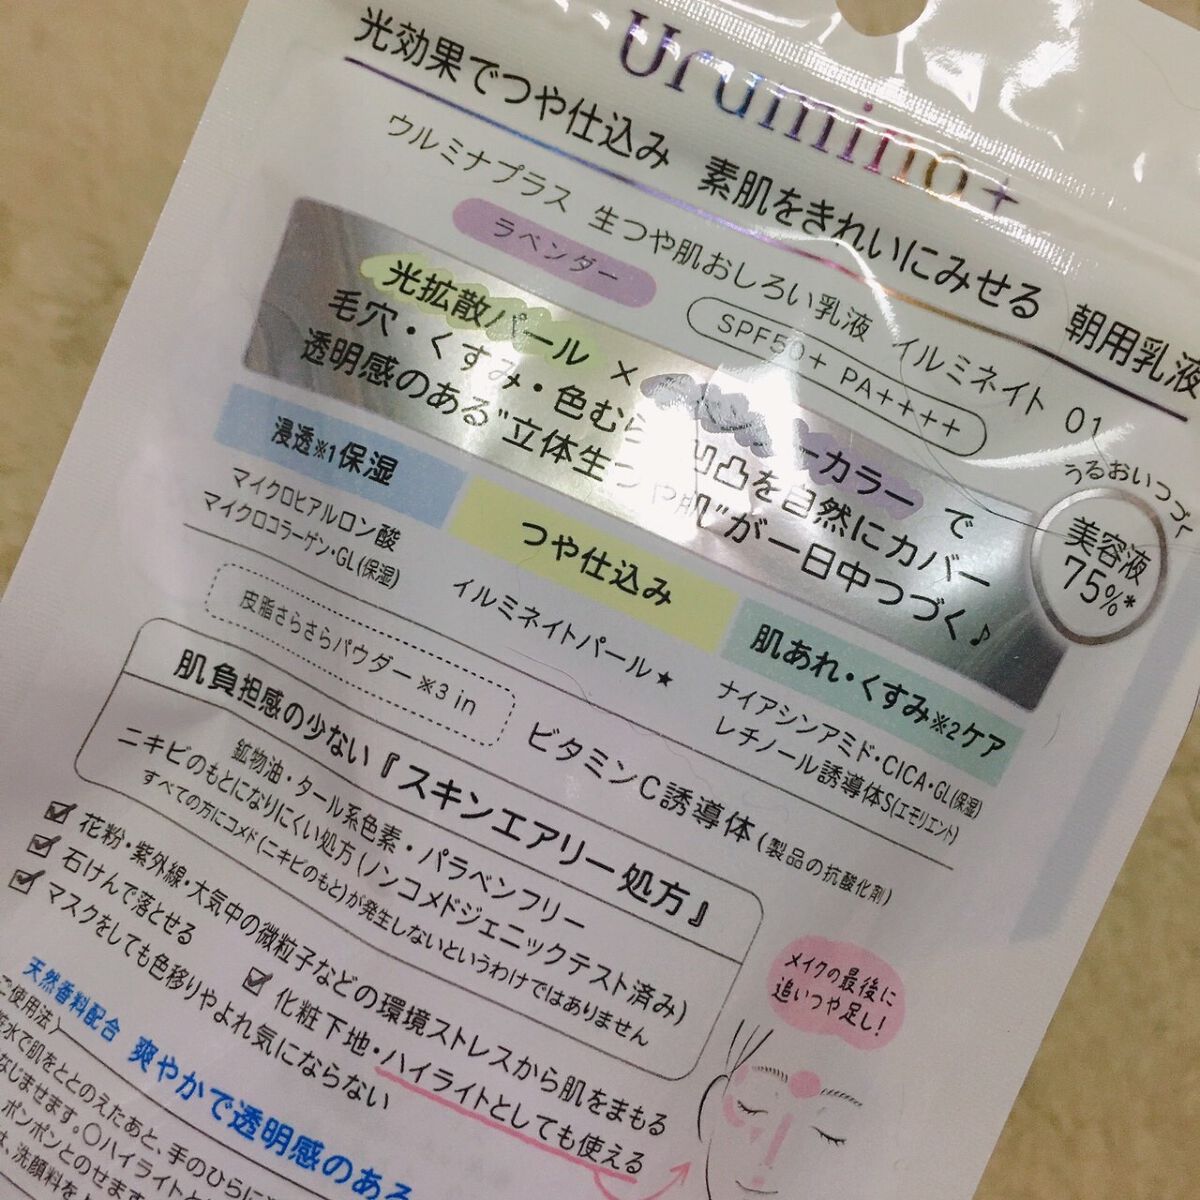 Urumina+
光効果でつや仕込み 素肌をきれいにみせる 朝用乳液
ウルミナプラス 生つや肌おしろい乳液 イルミネイト 01
ラベンダー
SPF50+ PA++++
光拡散パール × カラー で
毛穴・くすみ・色むら 凹凸を自然にカバー
透明感のある"立体生つや肌"が一日中つづく♪
うるおいつづく
美容液
75%*
浸透※1保湿
マイクロヒアルロン酸
マイクロコラーゲン・GL(保湿)
つや仕込み
イルミネイトパール★
肌あれ・くすみ※2ケア
ナイアシンアミド・CICA・GL(保湿)
レチノール誘導体S(エモリエント)
皮脂さらさらパウダー※3 in
ビタミンC誘導体(製品の抗酸化剤)
肌負担感の少ない『スキンエアリー処方』
鉱物油・タール系色素・パラベンフリー
ニキビのもとになりにくい処方(ノンコメドジェニックテスト済み)
すべての方にコメド(ニキビのもと)が発生しないというわけではありません
花粉・紫外線・大気中の微粒子などの環境ストレスから肌をまもる
石けんで落とせる
化粧下地・ハイライトとしても使える
マスクをしても色移りやよれ気にならない
メイクの最後に
追いつや足し!
天然香料配合 爽やかで透明感のある
ご使用法〉
水で肌をととのえたあと、手のひらに
なじませます。〇ハイライトと
ポンポンとのせます
、洗顔料を